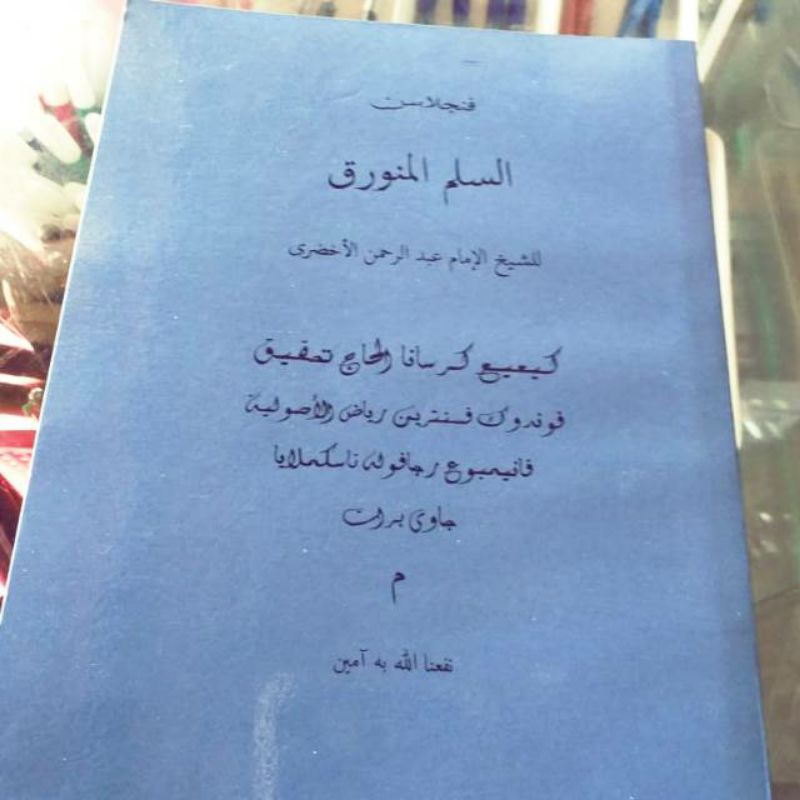 فنجلاسن
السلم المنورق
للشيخ الإمام عبد الرحمن الأخضرى
كيعيع كرسانا الحاج تحقيق
فوندوك فسنترين رياض الأصولية
فانيمبوع رجافوله تاسكملايا
جاوى برات
م
نفعنا الله به آمين